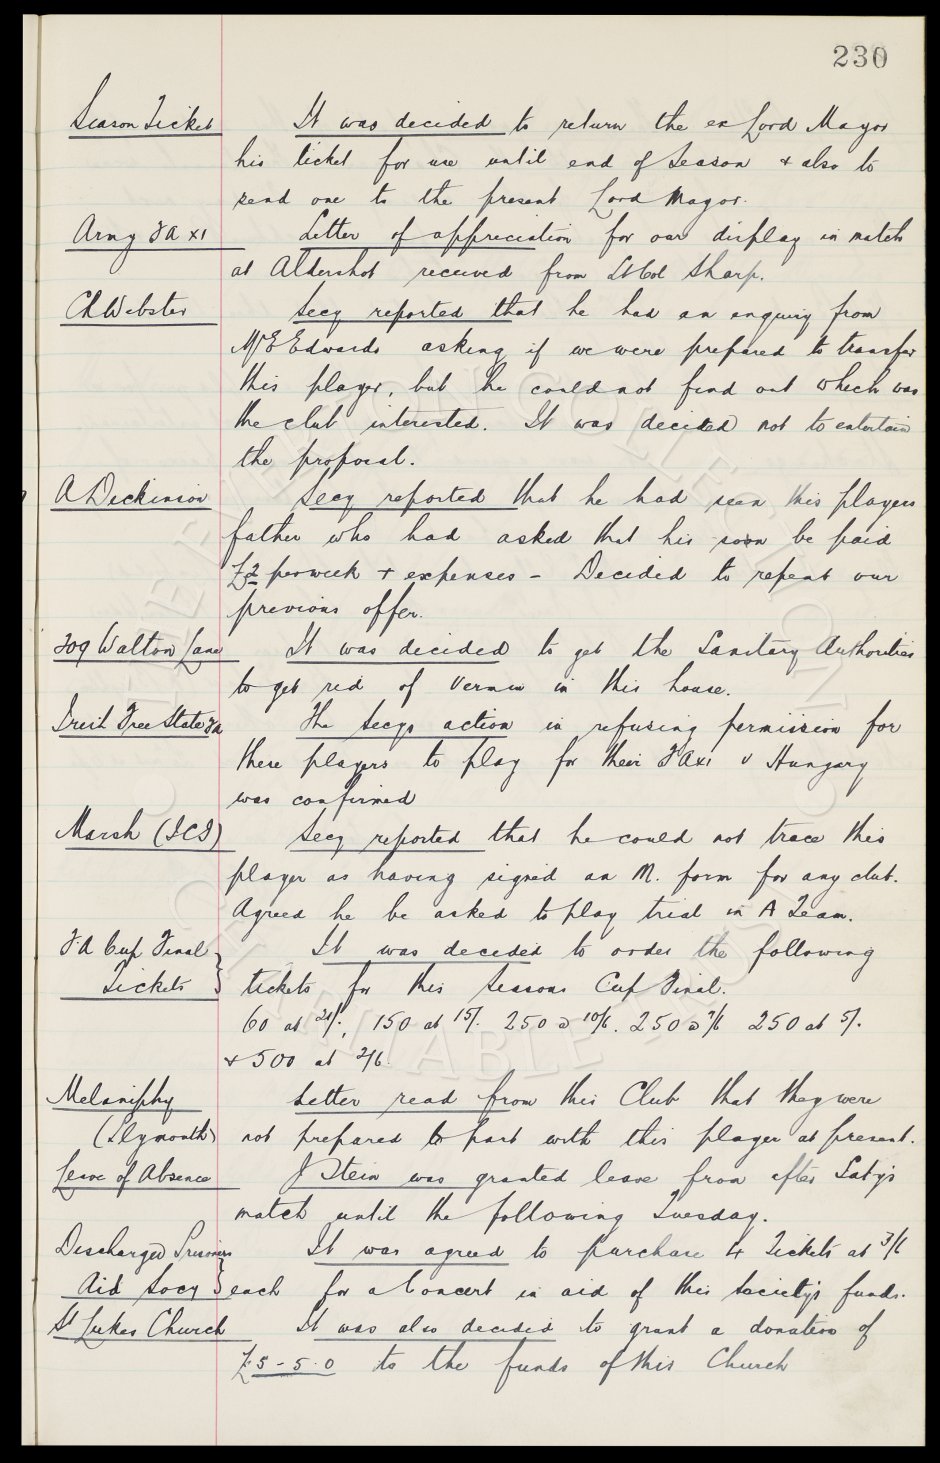 230
Season Ticket It was decided to return the ex Lord Mayor
his ticket for use until end of Season & also to
send one to the present Lord Mayor.
Army FA XI Letter of appreciation for our display in match
at Aldershot received from Lt Col Sharp.
C Webster Secy reported that he had an enquiry from
Mr E Edwards asking if we were prepared to transfer
this player, but he could not find out which was
the club interested. It was decided not to entertain
the proposal.
A Dickinson Secy reported that he had seen this players
father who had asked that his son be paid
£2 per week & expenses - Decided to repeat our
previous offer.
209 Walton Lane It was decided to get the Sanitary Authorities
to get rid of Vermin in this house.
Irish Free State FA The Secys action in refusing permission for
these players to play for their FA XI v Hungary
was confirmed
Marsh (ICI) Secy reported that he could not trace this
player as having signed an M. form for any club.
Agreed he be asked to play trial in A Team.
F.A Cup Final It was decided to order the following
Tickets } tickets for this Seasons Cup Final.
60 at 21/-, 150 at 15/- 250 @ 10/6. 250 @ 7/6 250 at 5/-
& 500 at 2/6.
Melaniphy Letter read from this Club that they were
(Plymouth) not prepared to part with this player at present.
Leave of Absence J Stein was granted leave from after Saty's
match until the following Tuesday.
Discharged Prisoners It was agreed to purchase 4 Tickets at 3/6
Aid Socy } each for a Concert in aid of this Society's funds.
St Lukes Church It was also decided to grant a donation of
£5-5.0 to the funds of this Church